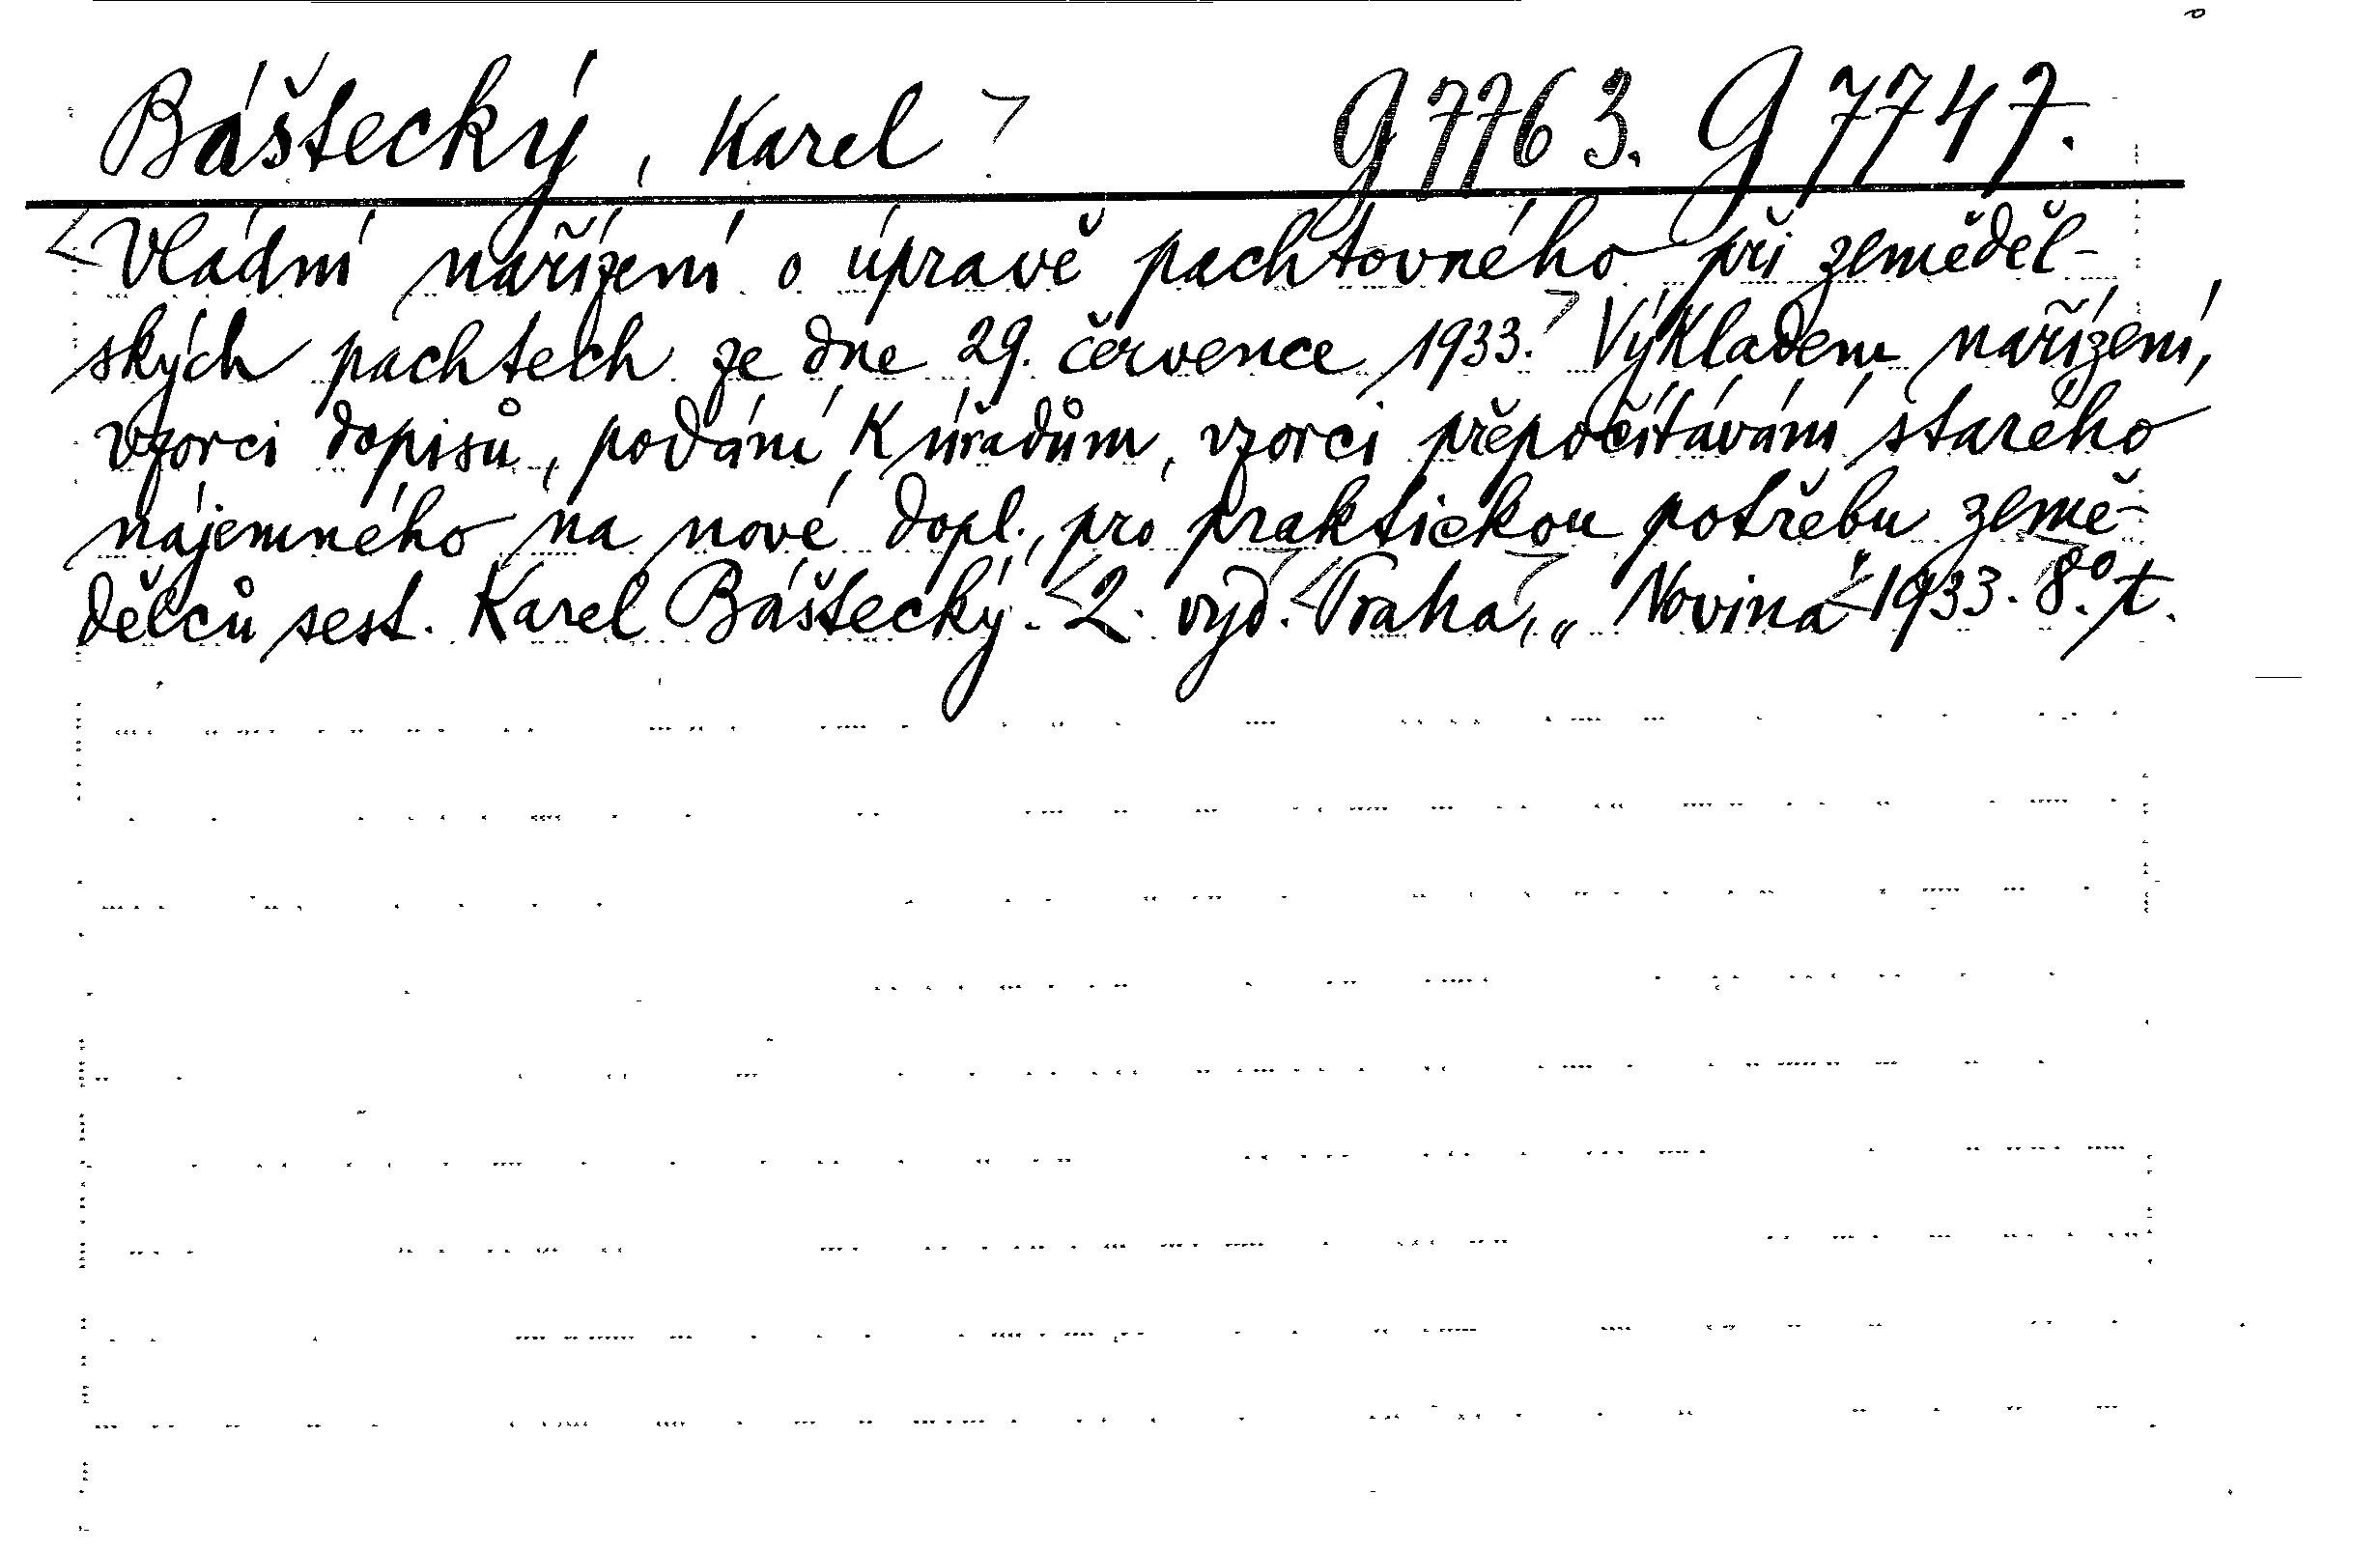 Báštecký, Karel G 7763. G 7747.
Vládní nařízení o úpravě pachtovného při zeměděl-
ských pachtech ze dne 29. července 1933. Výkladem nařízení,
vzorci dopisů, podání k úřadům, vzorci přepočítávání starého
nájemného na nové dopl., pro praktickou potřebu země-
dělců sest. Karel Báštecký. 2. vyd. Praha, „Novina" 1933. 8°. t.